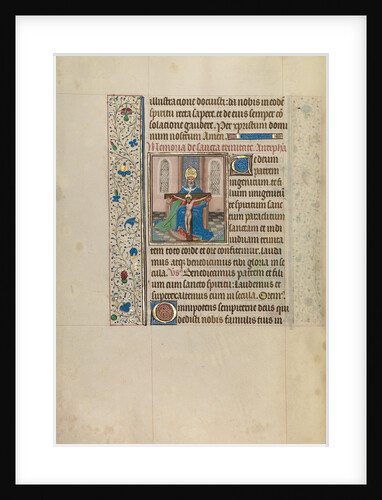 illustracione docuisti: da nobis in eodem
spiritu recta sapere, et de eius semper con
solacione gaudere. Per xpristum domi
num nostrum Amen
Memoria de sancta trinitate Antipha
Te deum
patrem
ingenitum, te fi
lium unigenitum
te spiritum sanc
tum paraclitum
sanctam et indi
viduam trinita
tem toto corde et ore confitemur. lauda
mus atque benedicimus tibi gloria in se
cula. Vs. Benedicamus patrem et fili
um cum sancto spiritu. Laudemus et
superexaltemus eum in secula. Oremus
Omnipotens sempiterne deus qui
dedisti nobis famulis tuis in